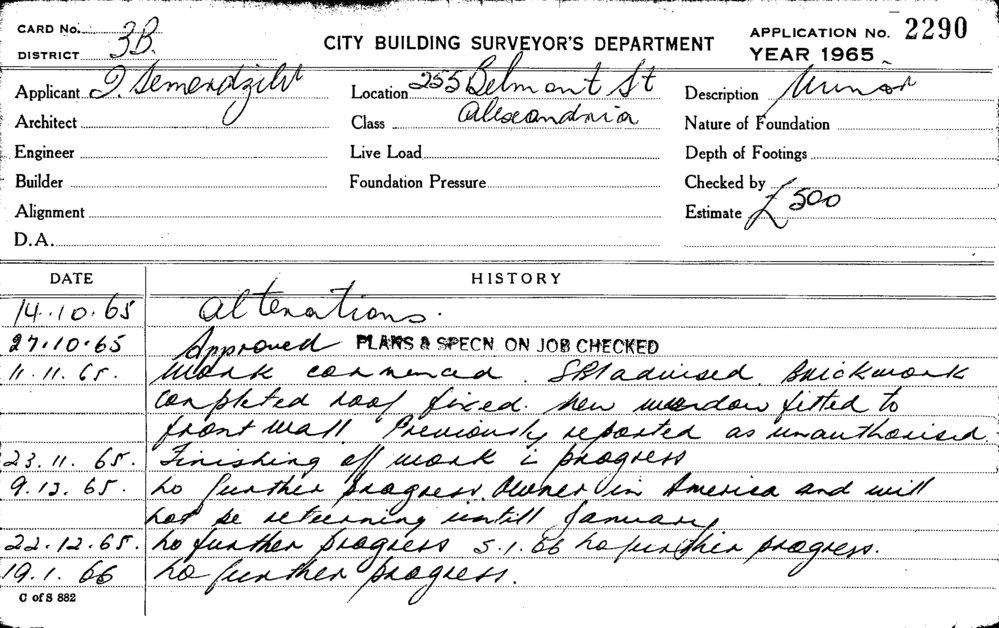 CARD No.
DISTRICT 3B.
CITY BUILDING SURVEYOR'S DEPARTMENT
APPLICATION No. 2290
YEAR 1965
Applicant
Location 255 Belmont St
Description Minor
Architect
Class Alexandria
Nature of Foundation
Engineer
Live Load
Depth of Footings
Builder
Foundation Pressure
Checked by
Alignment
Estimate £500
D.A.
DATE HISTORY
14.10.65 Alterations.
27.10.65 Approved PLANS & SPECN. ON JOB CHECKED
11.11.65. Work commenced. advised. Brickwork
completed roof fixed. New window fitted to
front wall. Previously reported as unauthorised
23.11.65. Finishing off work i progress
9.12.65. No further progress. Owner in America and will
not be returning untill January
22.12.65. No further progress 5.1.66 No further progress.
19.1.66 No further progress.
C of S 882